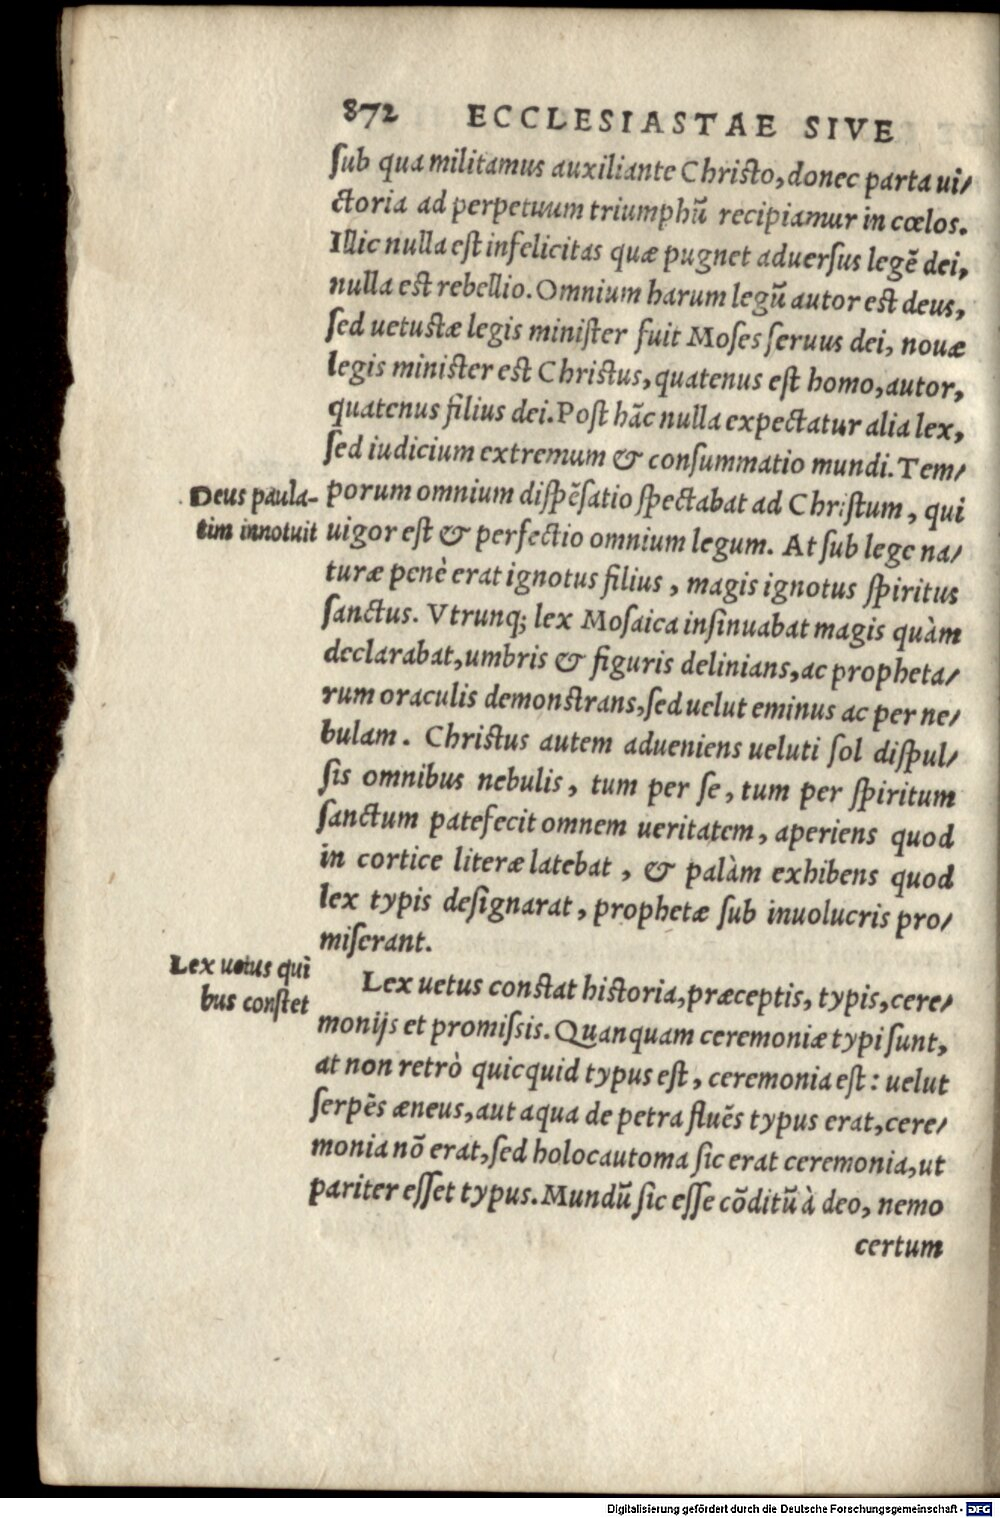 872 ECCLESIASTAE SIVE
ſub qua militamus auxiliante Christo, donec parta ui/
ctoria ad perpetuum triumphũ recipiamur in cœlos.
Illic nulla eſt infelicitas quæ pugnet aduerſus legẽ dei,
nulla est rebellio. Omnium harum legũ autor est deus,
ſed uetustæ legis miniſter fuit Moſes ſeruus dei, nouæ
legis minister est Christus, quatenus eſt homo, autor,
quatenus filius dei. Poſt hãc nulla expectatur alia lex,
ſed iudicium extremum & conſummatio mundi. Tem/
Deus paula-
tim innotuit
porum omnium diſpẽſatio ſpectabat ad Chriſtum, qui
uigor eſt & perfectio omnium legum. At ſub lege na/
turæ penè erat ignotus filius, magis ignotus ſpiritus
ſanctus. Vtrunq; lex Moſaica inſinuabat magis quàm
declarabat, umbris & figuris delinians, ac propheta/
rum oraculis demonstrans, ſed uelut eminus ac per ne/
bulam. Christus autem adueniens ueluti ſol diſpul/
ſis omnibus nebulis, tum per ſe, tum per ſpiritum
ſanctum patefecit omnem ueritatem, aperiens quod
in cortice literæ latebat, & palàm exhibens quod
lex typis deſignarat, prophetæ ſub inuolucris pro/
miſerant.
Lex uetus qui
bus conſtet
Lex uetus constat historia, præceptis, typis, cere/
monijs et promiſsis. Quanquam ceremoniæ typi ſunt,
at non retrò quicquid typus eſt, ceremonia eſt: uelut
ſerpẽs æneus, aut aqua de petra fluẽs typus erat, cere/
monia nõ erat, ſed holocautoma ſic erat ceremonia, ut
pariter eſſet typus. Mundũ ſic eſſe cõditũ à deo, nemo
certum
Digitalisierung gefördert durch die Deutsche Forschungsgemeinschaft - DFG